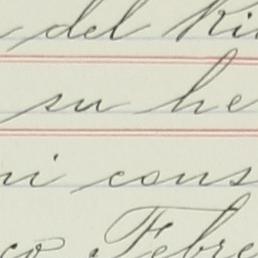 del Ri
su he
ni cons
co Febre